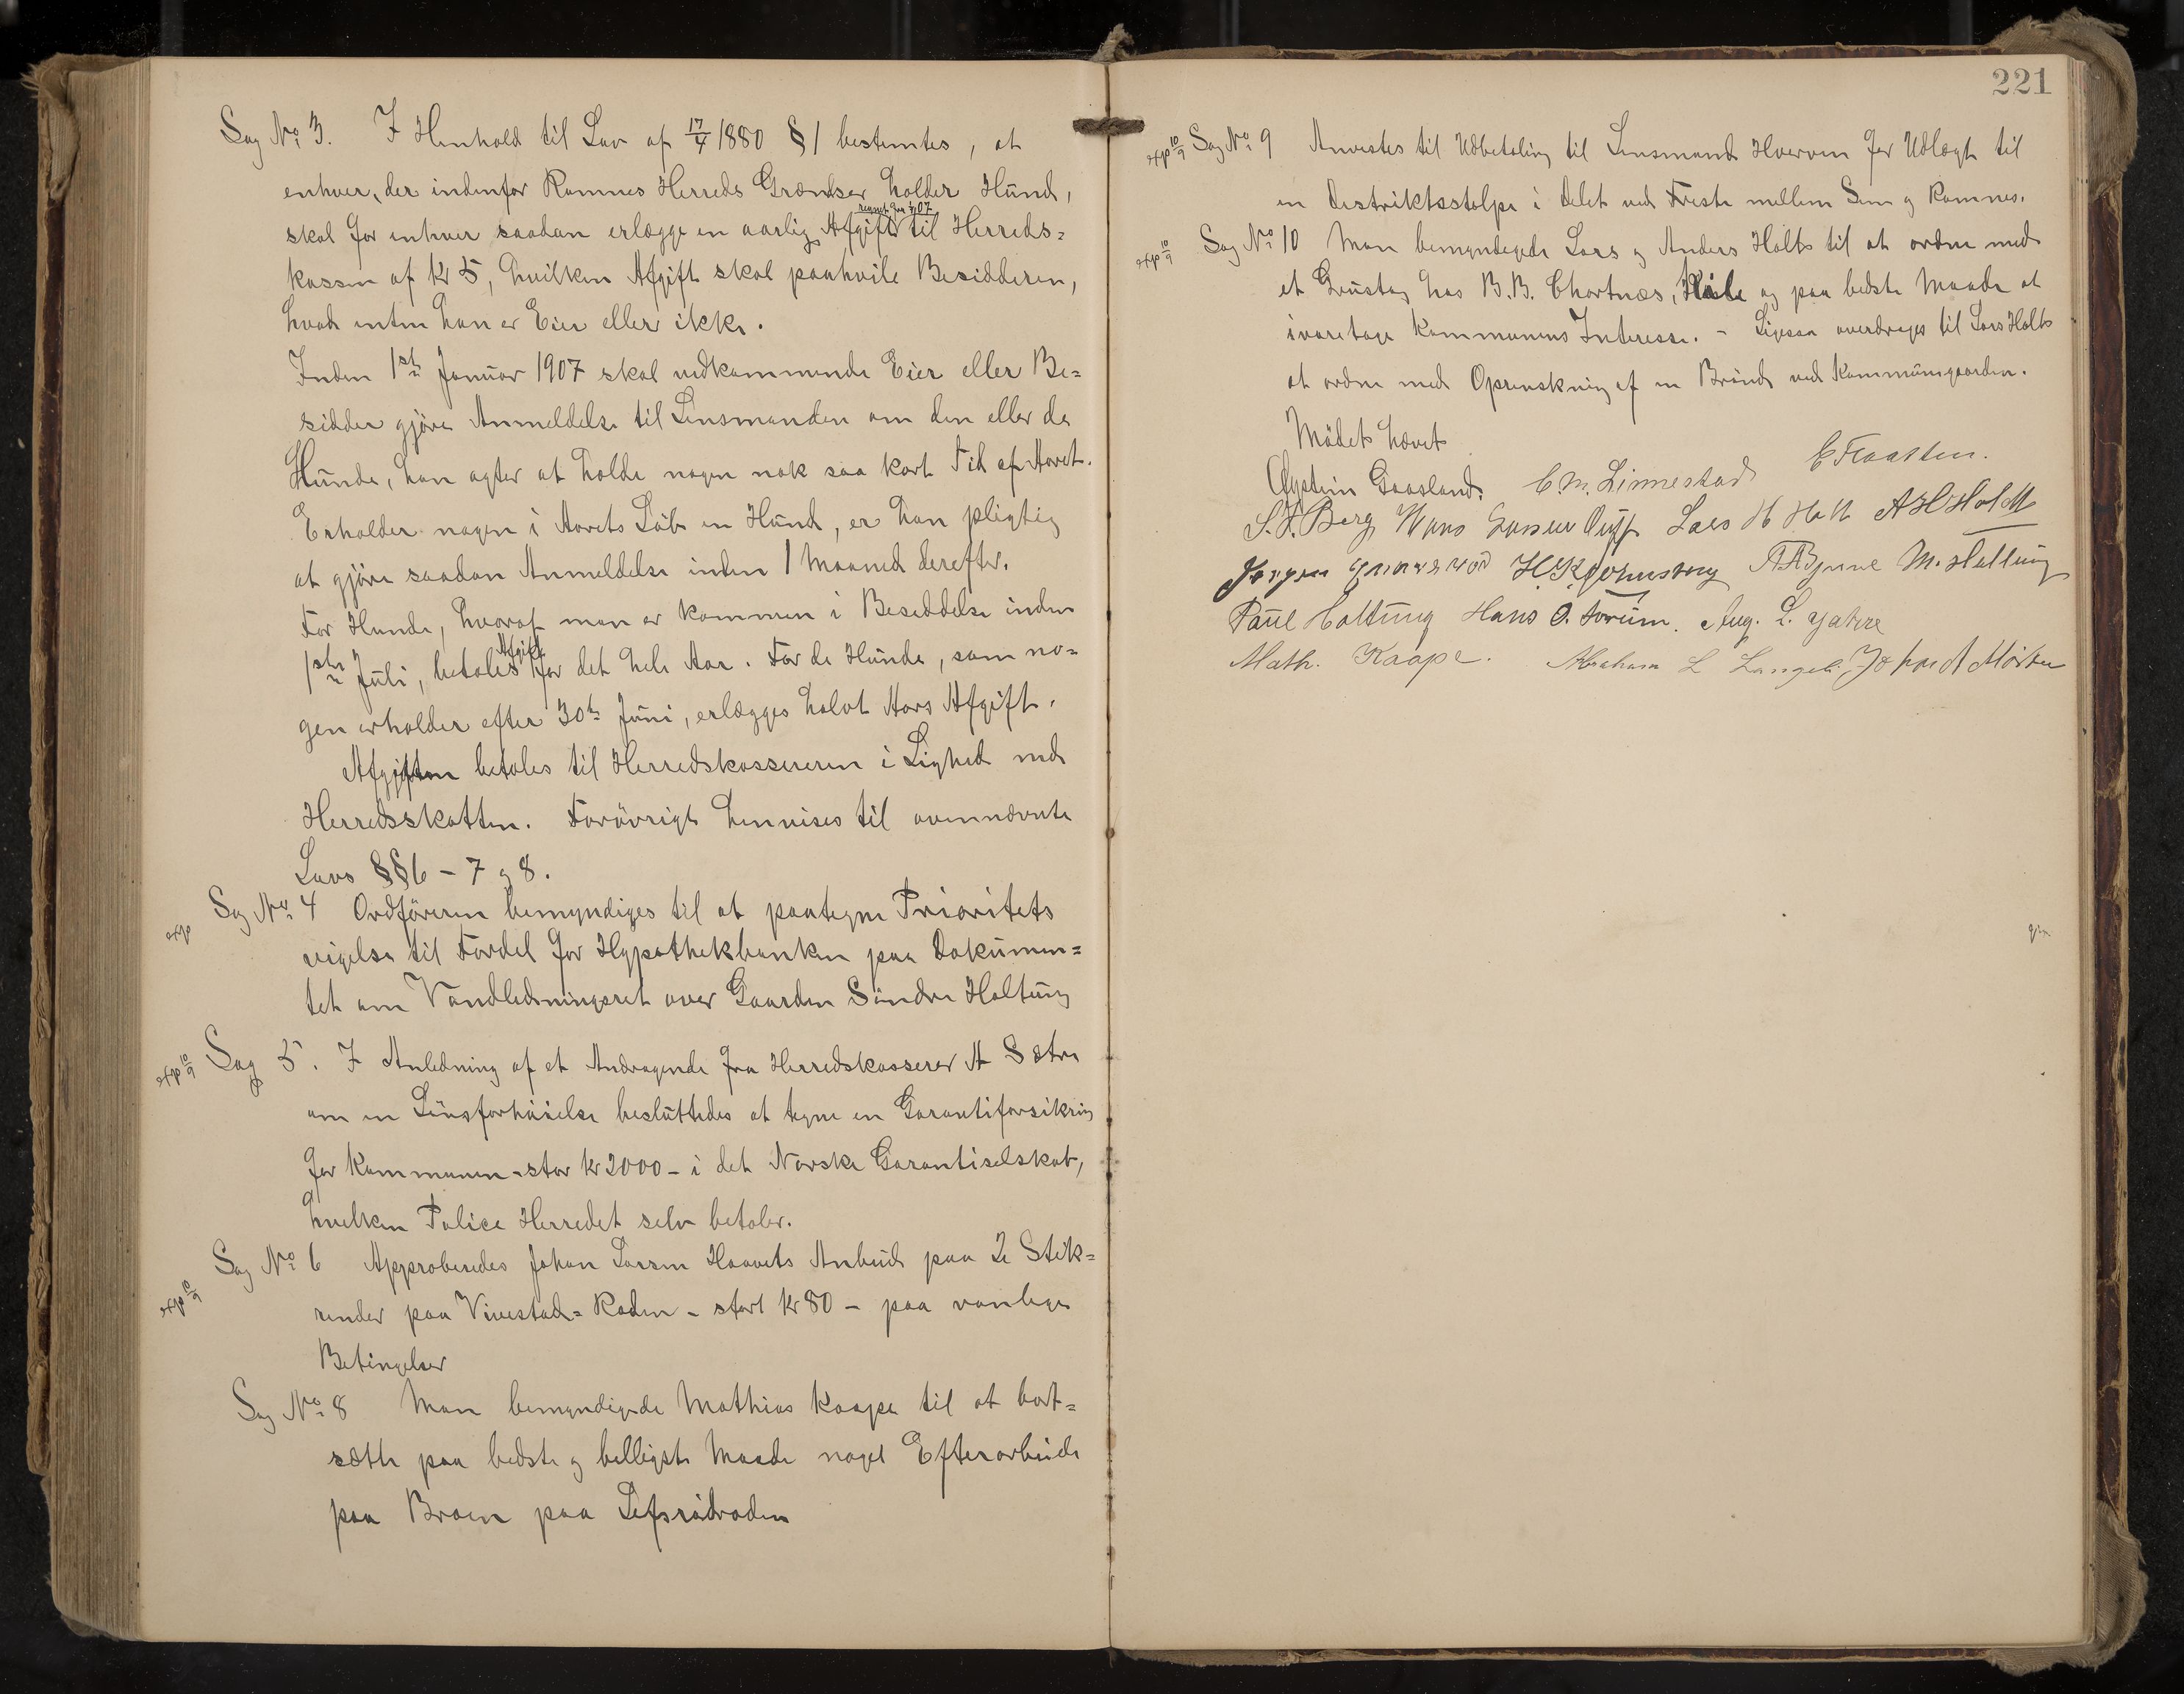 Sag No 3. I Henhold til Lov af 17/4 1880 § 1 bestemtes, at
enhver, der indenfor Ramnes Herreds Grændser holder Hund,
regnet fra 1/1 07
skal for enhver saadan erlægge en aarlig Afgift til Herreds=
kassen af Kr 5, hvilken Afgift skal paahvile Besidderen,
hvad enten han er Eier eller ikke.
Inden 1ste Januar 1907 skal vedkommende Eier eller Be=
sidder gjöre Anmeldelse til Lensmanden om den eller de
Hunde, han agter at holde nogen nok saa kort Tid af Aaret.
Erholder nogen i Aarets Löb en Hund, er han pligtig
at gjöre saadan Anmeldelse inden 1 Maaned derefter.
For Hunde, hvoraf man er kommen i Besiddelse inden
Afgift
1ste Juli, betales for det hele Aar. For de Hunde, som no=
gen erholder efter 30te Juni, erlægges halvt Aars Afgift.
Afgiften betales til Herredskassereren i Lighed med
Herredsskatten. Forövrigt henvises til ovennævnte
Lovs §§ 6 - 7 og 8.
exp Sag No 4 Ordföreren bemyndiges til at paategne Prioritets
vigelse til Fordel for Hypothekbanken paa Dokumen=
tet om Vandledningsret over Gaarden Söndre Holtung
exp 10/9 Sag 5. I Anledning af et Andragende fra Herredskasserer A Sætre
om en Lönsforhöielse besluttedes at tegne en Garantiforsikring
for Kommunen - stor kr 2000 - i det Norske Garantiselskab,
hvilken Police Herredet selv betaler.
exp 10/9 Sag No 6 Approberedes Johan Larsen Haavets Anbud paa 2 Stik=
render paa Vivestad=Roden - stort Kr 80 - paa vanlige
Betingelser
Sag No 8 Man bemyndigede Mathias Kaape til at bort=
sætte paa bedste og billigste Maade noget Efterarbeide
paa Broen paa Lefsrödroden
221
exp 10/9 Sag No 9 Anvistes til Udbetaling til Lensmand Hvarven for Udlægt til
en Distriktsstolpe i Delet ved Freste mellem Sem og Ramnes.
exp 10/9 Sag No 10 Man bemyndigede Lars og Anders Holt til at ordne med
et Grustag hos B.B. Chortnæs, og paa bedste Maade at
ivaretage Kommunens Interesse. - Ligesaa overdrages til Lars Holt
at ordne med Oprenskning af en Brönd ved Kommunegaarden.
Mödet hævet
Öystein Gaasland. C. M. Linnestad C Flaatten.
S. S. Berg Hans Lars H Holt A H Holdt
Jörgen H. K. Johnsborg A A Bjune M. Holtung
Paul Holtung Hans O. Forum. Aug. L. Jahre
Math. Kaape. Abraham L Langeli Johan A Mörken